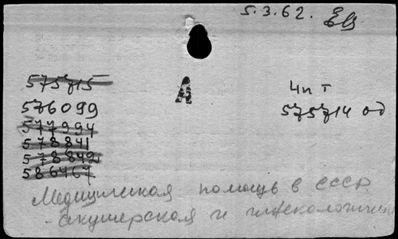 5.3.62. ЕВ
575715
576099
577994
578841
578842
586467
А
Чит
575714 од
Медицинская помощь в СССР
-акушерская и гинекологическ